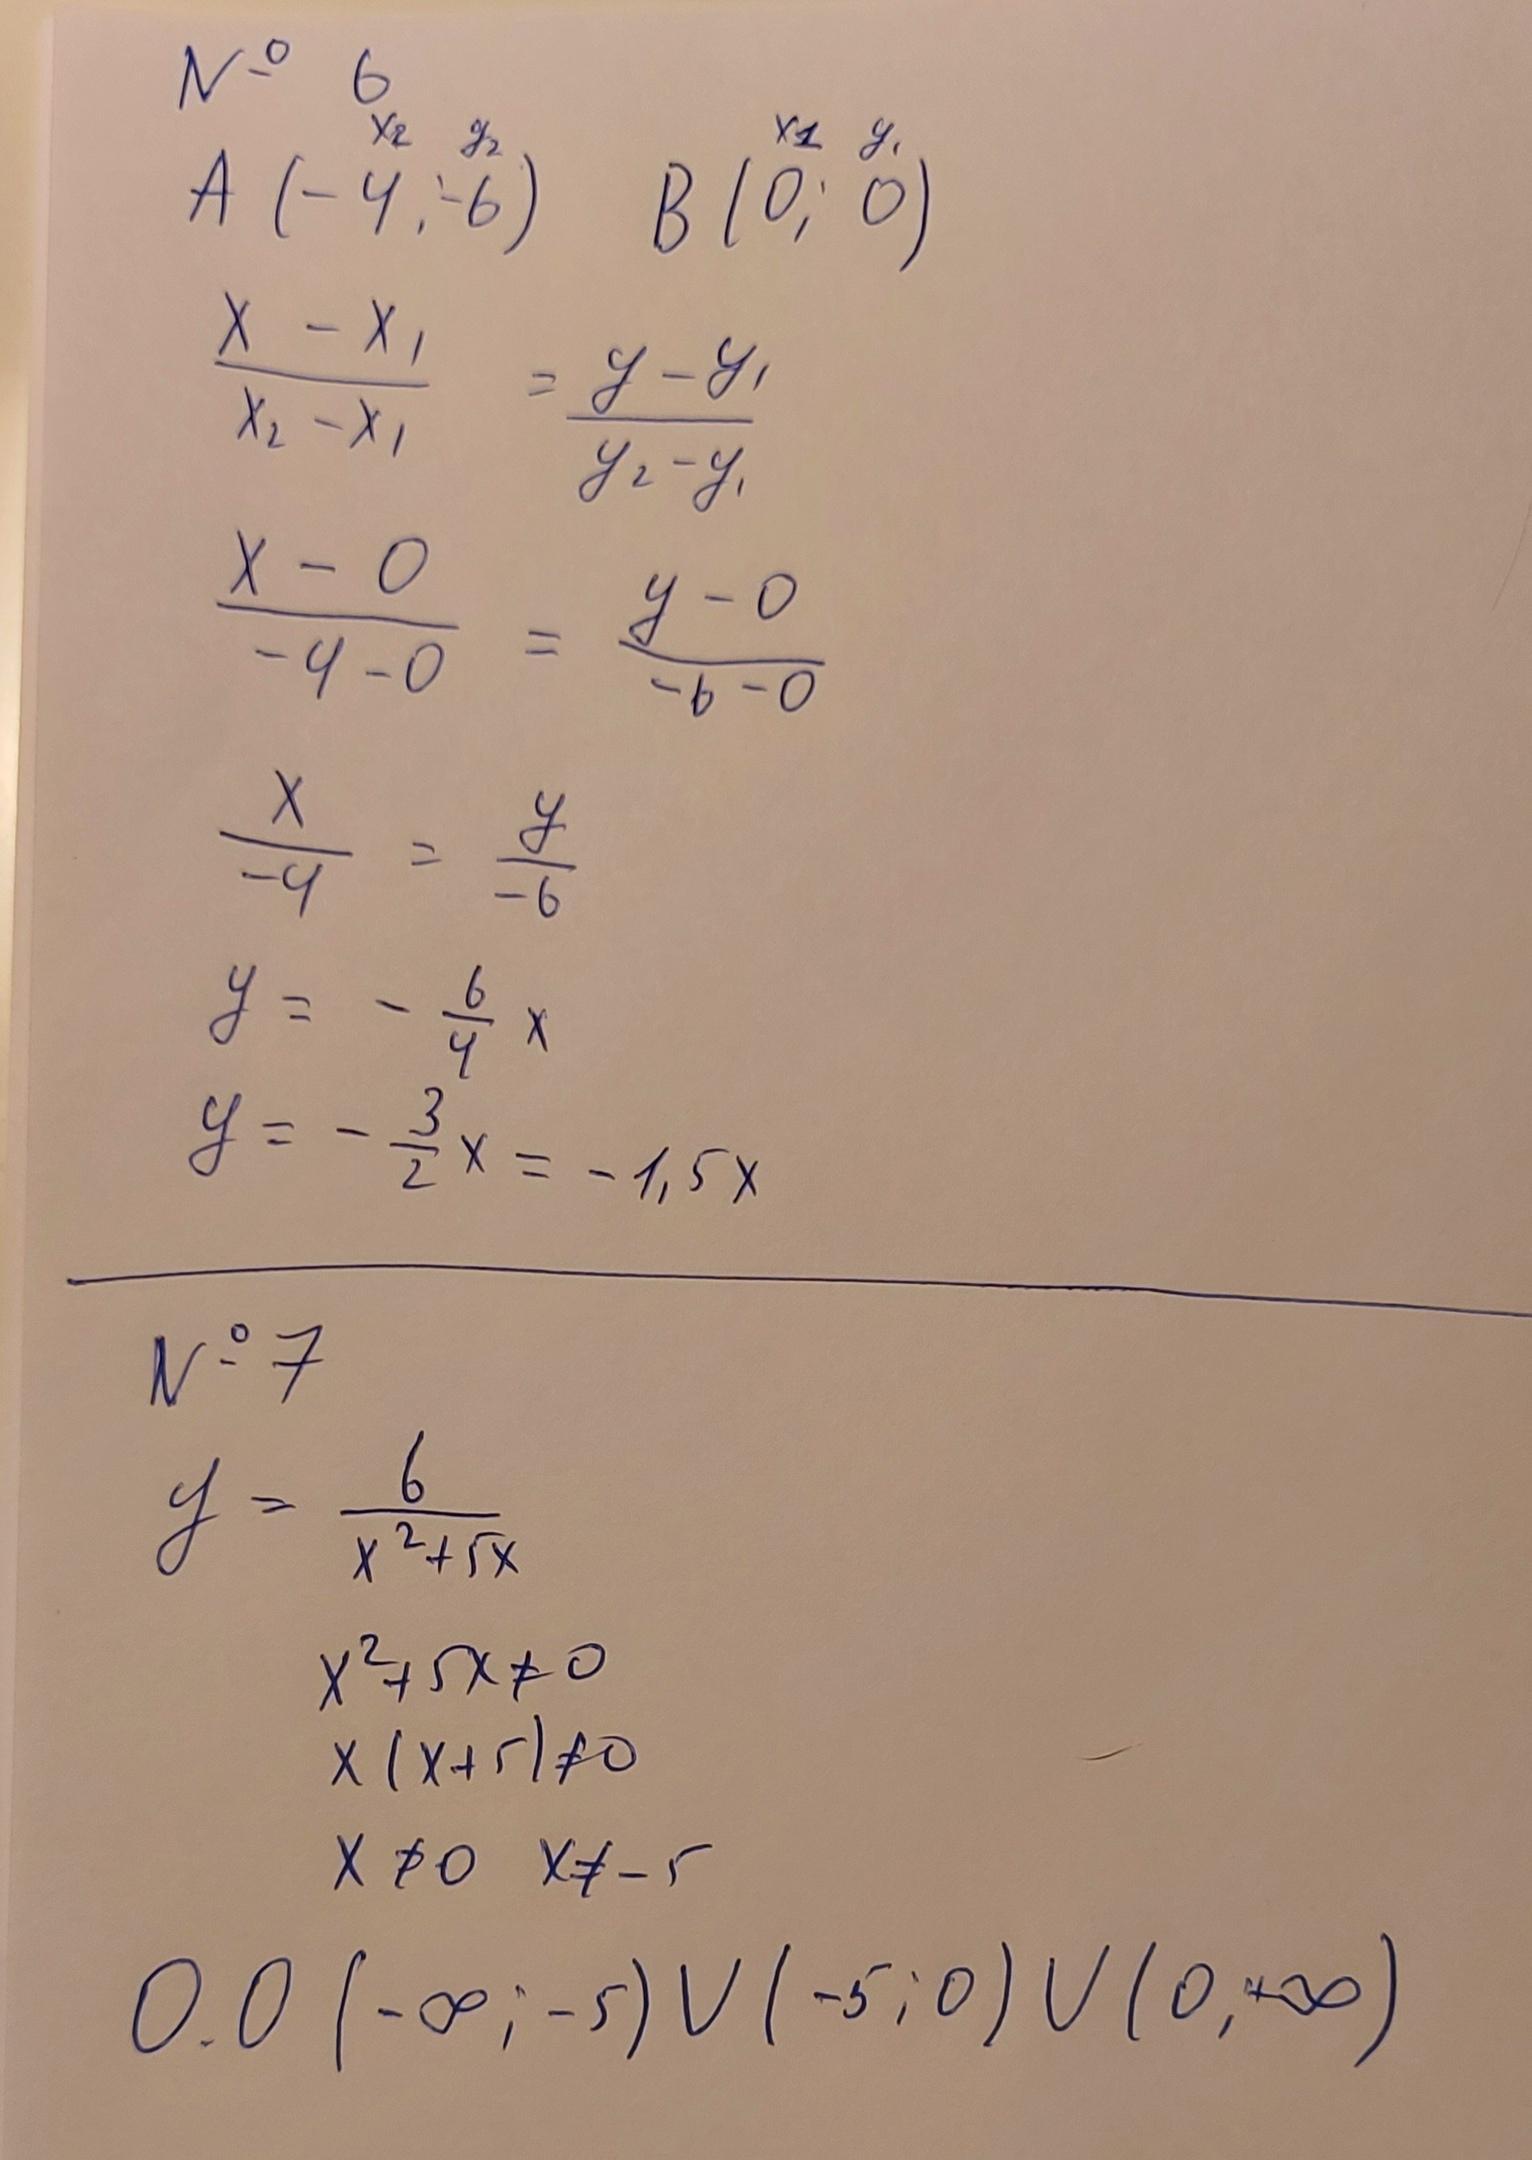 № 6
x2 y2 x1 y1
A (-4; -6) B (0; 0)
(x - x1)/(x2 - x1) = (y - y1)/(y2 - y1)
(x - 0)/(-4 - 0) = (y - 0)/(-6 - 0)
x/(-4) = y/(-6)
y = - 6/4 x
y = - 3/2 x = -1,5x
№ 7
y = 6/(x²+5x)
x²+5x≠0
x(x+5)≠0
x≠0 x≠-5
О.О (-∞; -5) ∪ (-5; 0) ∪ (0; +∞)